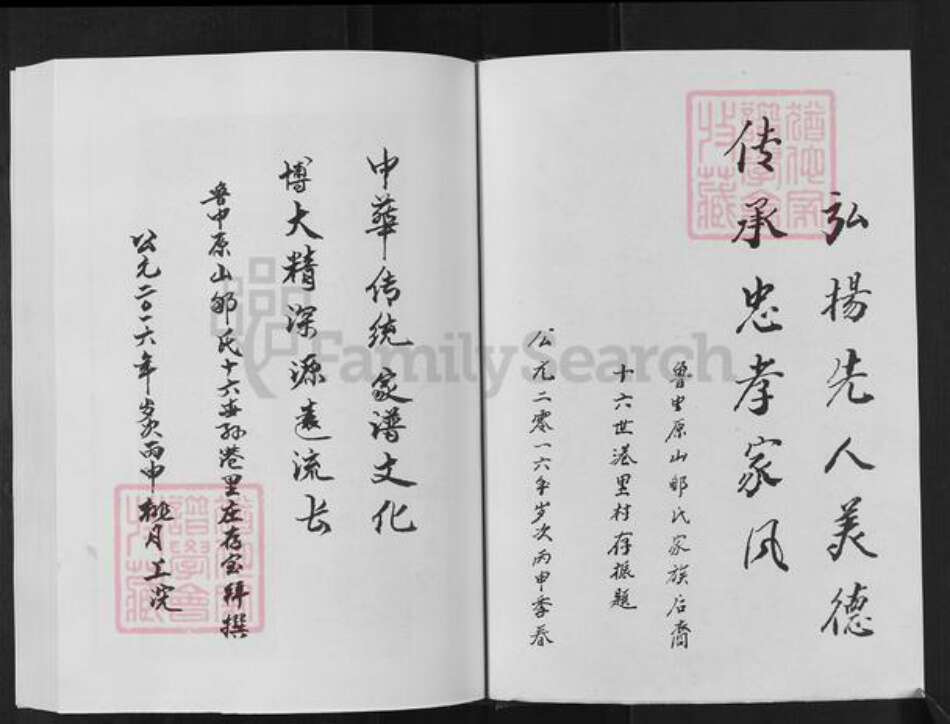 弘揚先人美德
传承忠孝家风
鲁中原山邹氏家族后裔
十六世港里村存振题
公元二零一六年岁次丙申季春
中華传统家谱文化
博大精深源遠流长
鲁中原山邹氏十六世孙港里庄存宝拜撰
公元二〇一六年岁次丙申桃月上浣
FamilySearch